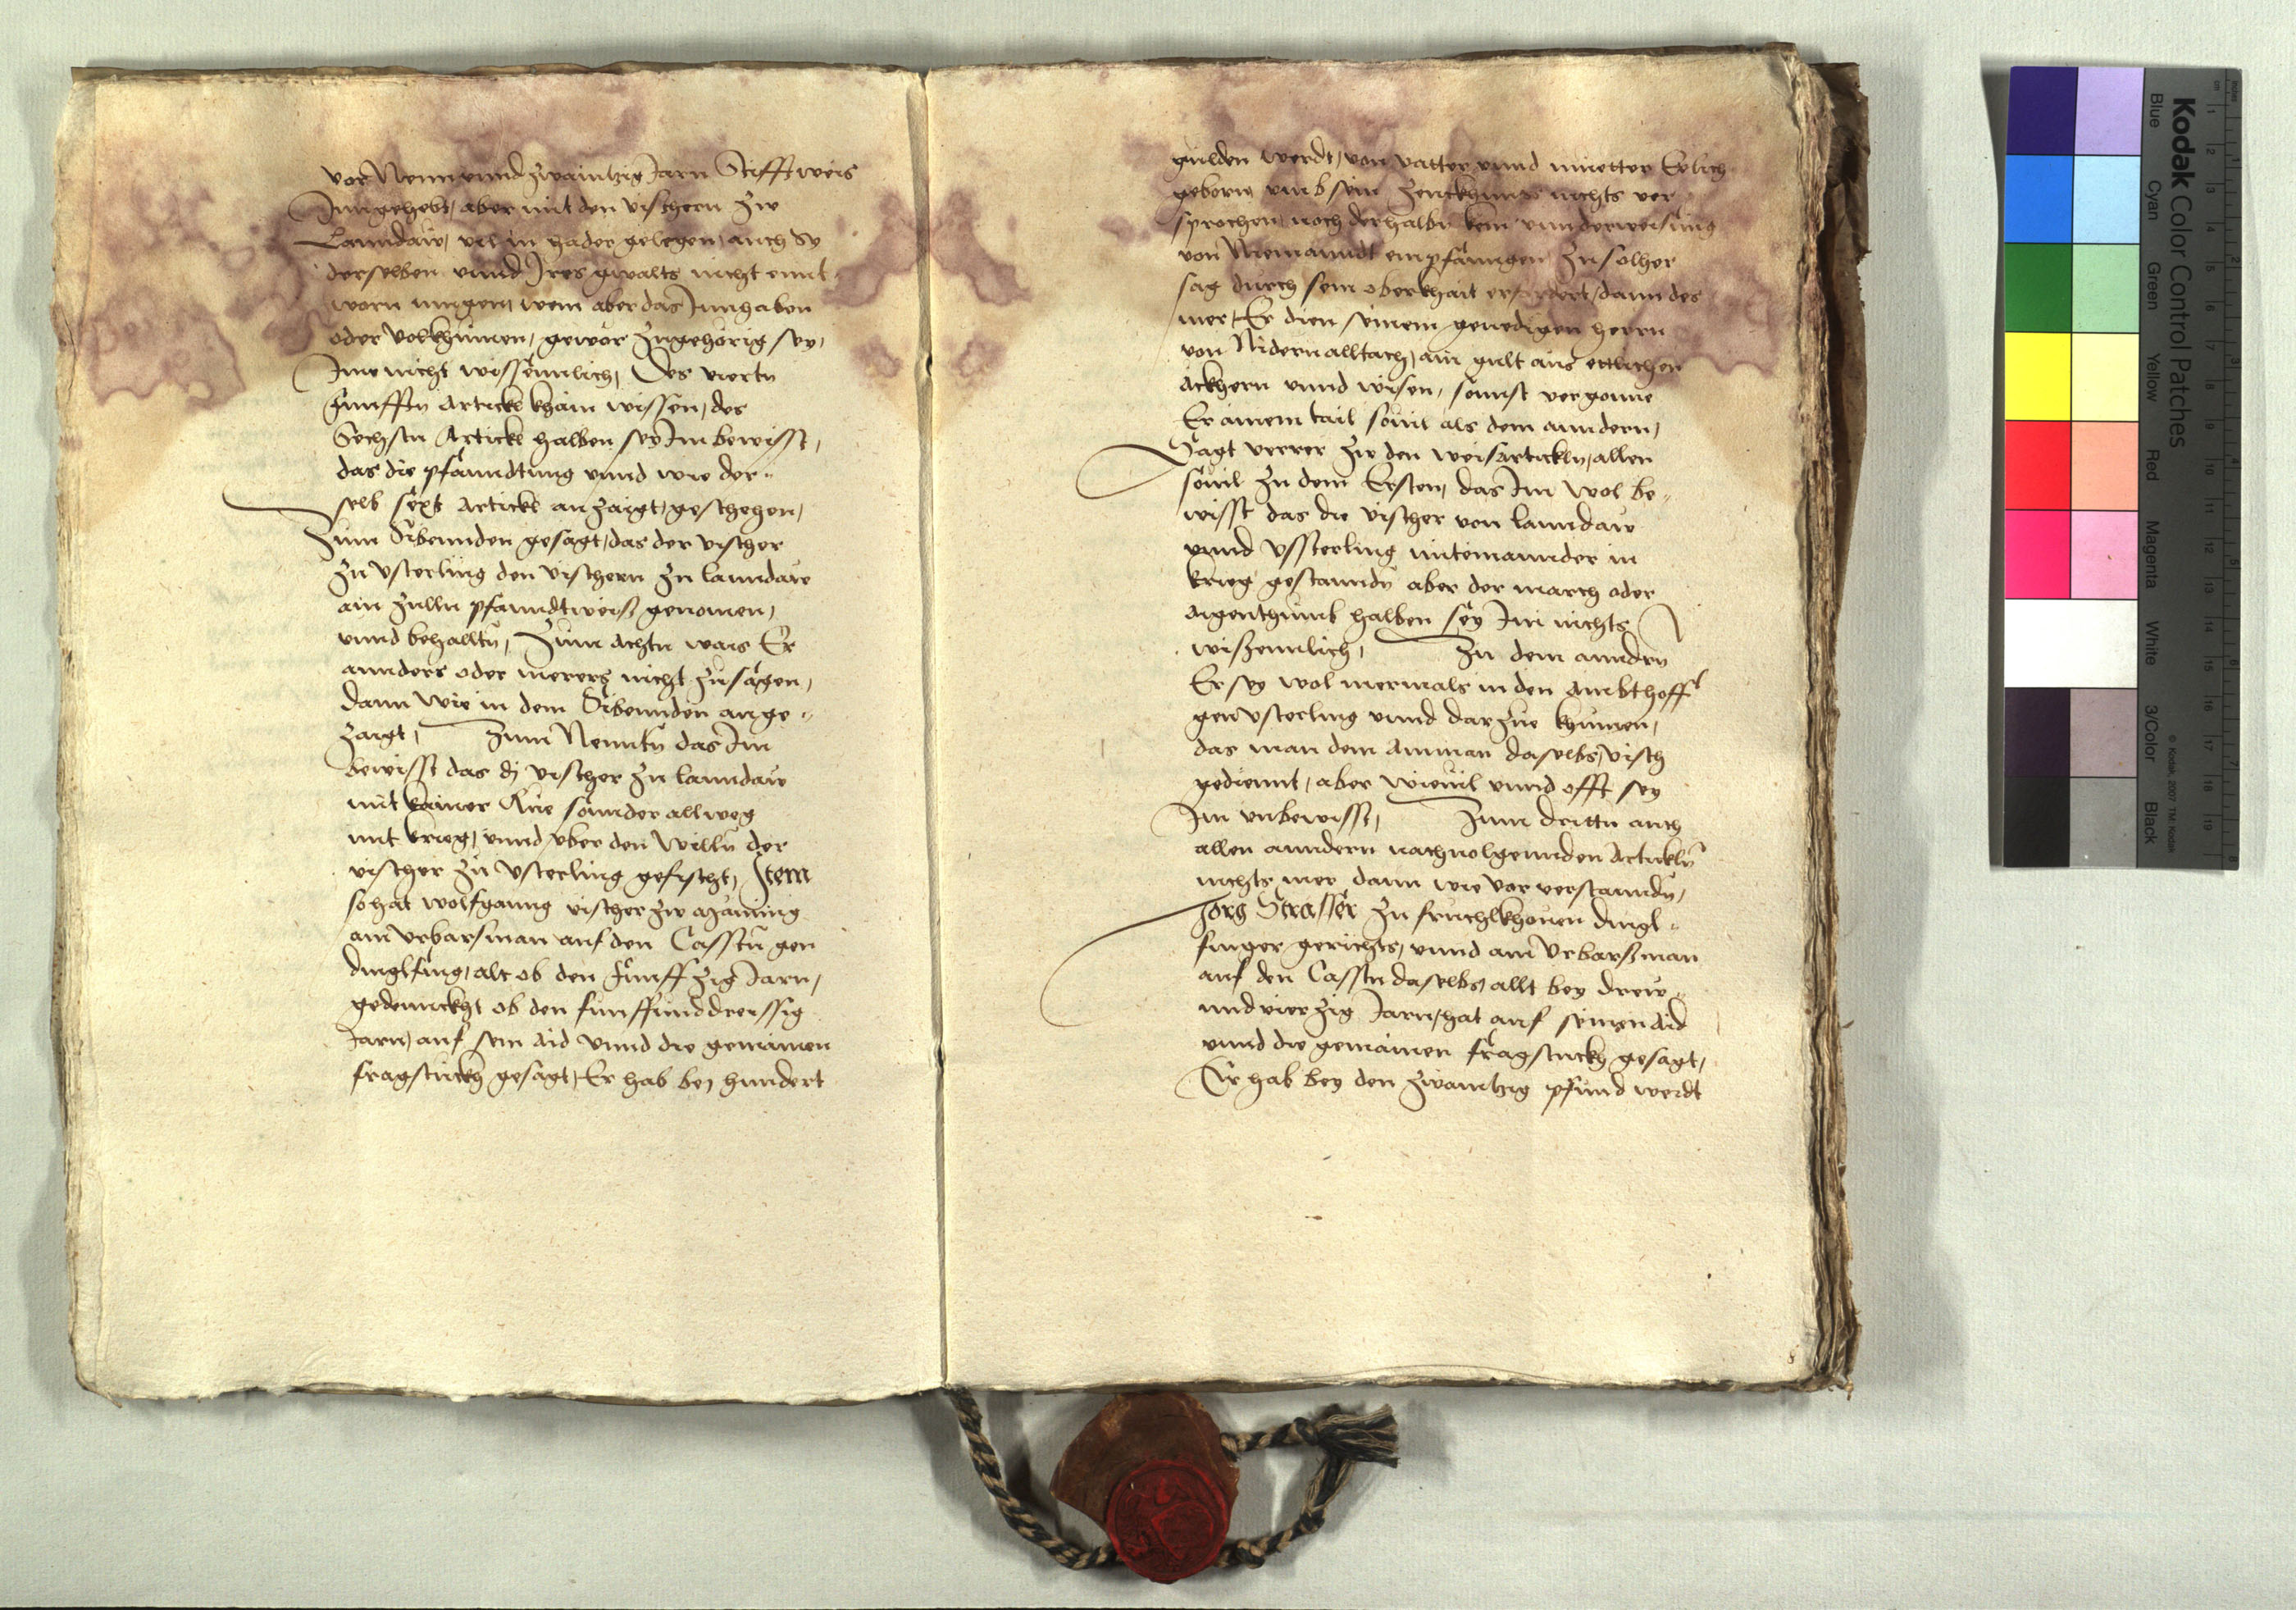 vor Neun unnd zwaintzig Jarn Stifftweis
Inngehebt, aber mit den vischern zw
Lanndaw, vil in hader gelegen, auch Sy
derselben unnd Jres gwalts nicht ennt
worn mugen, wem aber das Innhaben
oder volkhumen, gewör zugehörig sey,
Ime nicht wissennlich, Des viertn
funfftn Articke khain wissen, des
Sechstn Articke halben sey Im bewisst,
das die pfanndtung unnd wie der„
selb sext Articke anzaigt, geschehen,
Zum Sibennden gesagt, das der vischer
zu Usterling den vischern zu lanndaw
ain zulln pfanndtweis genomen,
unnd behalltn, Zum achtn wais Er
annders oder merers nicht zusagen,
dann wie in dem Sibennden ange„
zaigt, Zum Neuntn das Im
bewisst das dj vischer zu lanndaw
mit kainer Rue sonnder allweg
mit krieg, unnd uber den willn der
vischer zu Usterling gefischt, Item
so hat wolfganng vischer zw Maming
ain Urbarsman auf den Casstn gen
dinglfing, alt ob den funffzig Jarn,
gedennckht ob den funffunddreissig
Jarn, auf sein Aid unnd die gemainen
fragstuckh gesagt, Er hab bej hundert
gulden werdt, von vatter unnd muetter Erlich
geborn umb sein zeuckhnus nichts ver
sprochen, noch derhalbn kein unnderweisung
von Niemanndt empfanngen zu solher
sag durch sein oberkhait erfordert, dann des
mer, Er dien seinem genedigen herrn
von Nidernalltach, ain gult aus ettlichen
ackhern unnd wisen, sonnst vergonne
Er ainem tail sovil als dem anndern,
Sagt verrer zw den weisartickln, allen
sovil zu dem Ersten, das Im wol be„
wisst das die vischer von lanndaw
unnd Ussterling miteinannder in
krieg gestanndn aber der march oder
aigenthumb halben sey Im nichts
wissennlich, Zu dem anndrn
Er sey wol mermals in den Ambthoff
gen Usterling unnd darzue khumen,
das man dem Amman daselbs, visch
gediennt, aber wievil unnd offt sey
Im unbewisst, Zum drittn auch
allen anndern nachvolgennden Artickln
nichts mer dann wie vor verstanndn,
Jorg Strasser zu fruchlkhoven dingl„
finger gerichts, unnd ain Urbarsman
auf den Casstn daselbs, allt bey drew„
undvierzig Jarn, hat auf seinen Aid
unnd die gemainen fragstuckh gesagt,
Er hab bey den zwaintzig pfund werdt
Kodak Color Control Patches
Blue Cyan Green Yellow Red Magenta White 3/Color Black
© Kodak, 2007 TM: Kodak